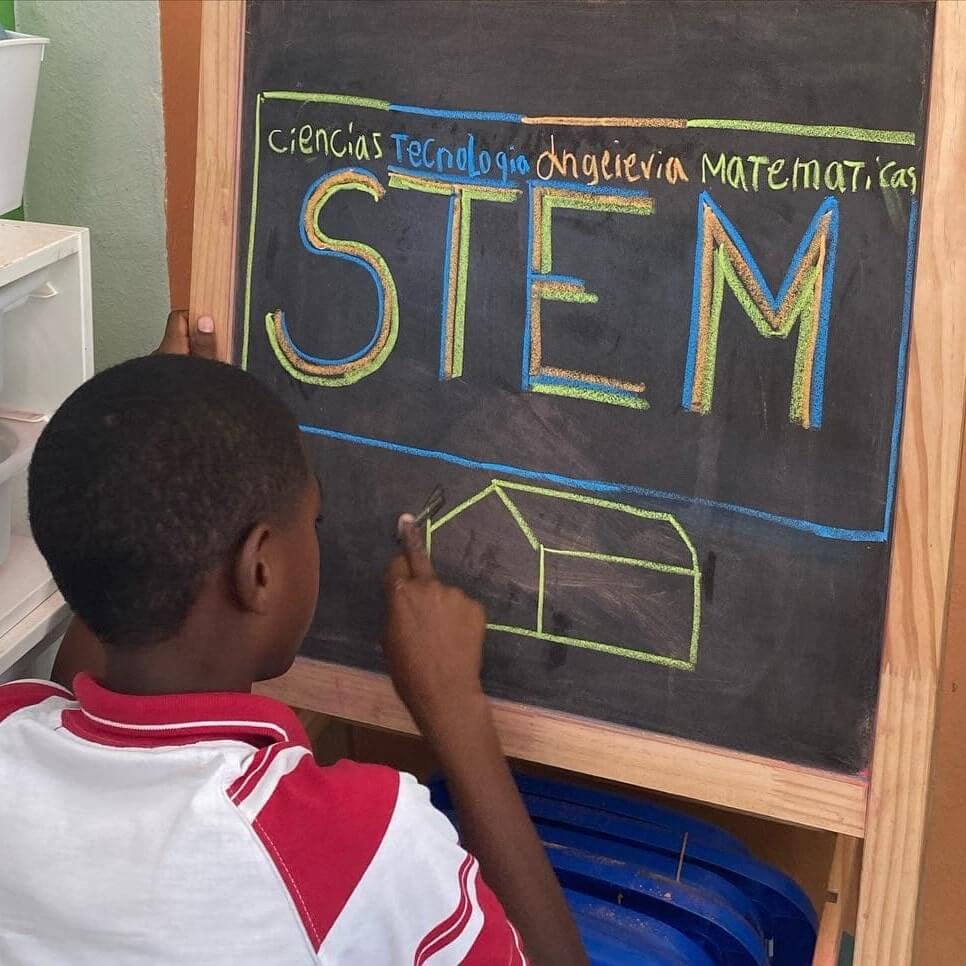 Ciencias TecnoLogia Ingeieria MATemATicas
STEM